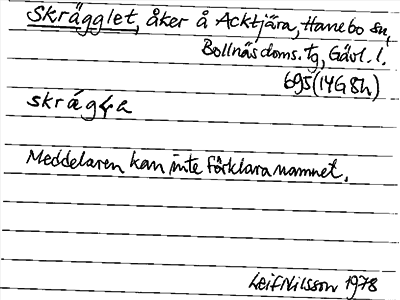 Skrägglet, åker å Acktjära, Hanebo sn,
Bollnäs doms. tg, Gävl. l.
695 (14G8h)
Meddelaren kan inte förklara namnet.
Leif Nilsson 1978